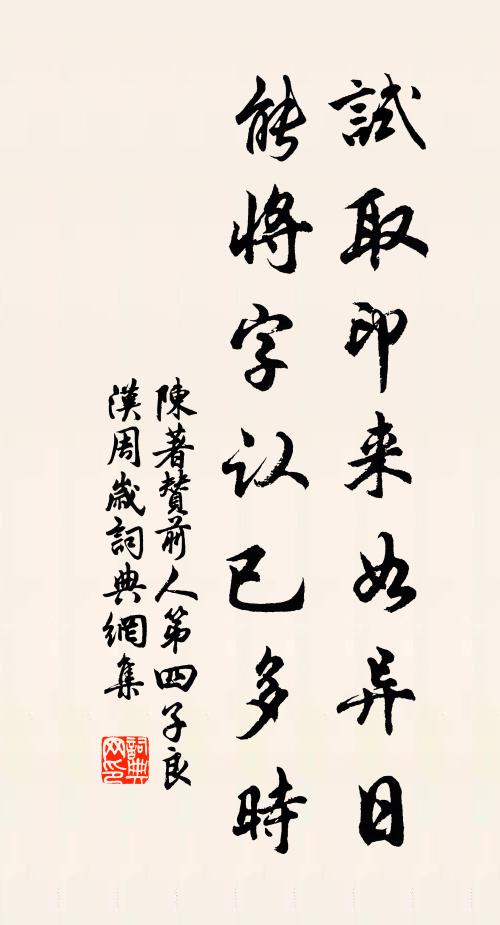 試取印来如异日
能将字认已多時
陳著賛前人第四子良
漢周歳詞典網集
詞典網印